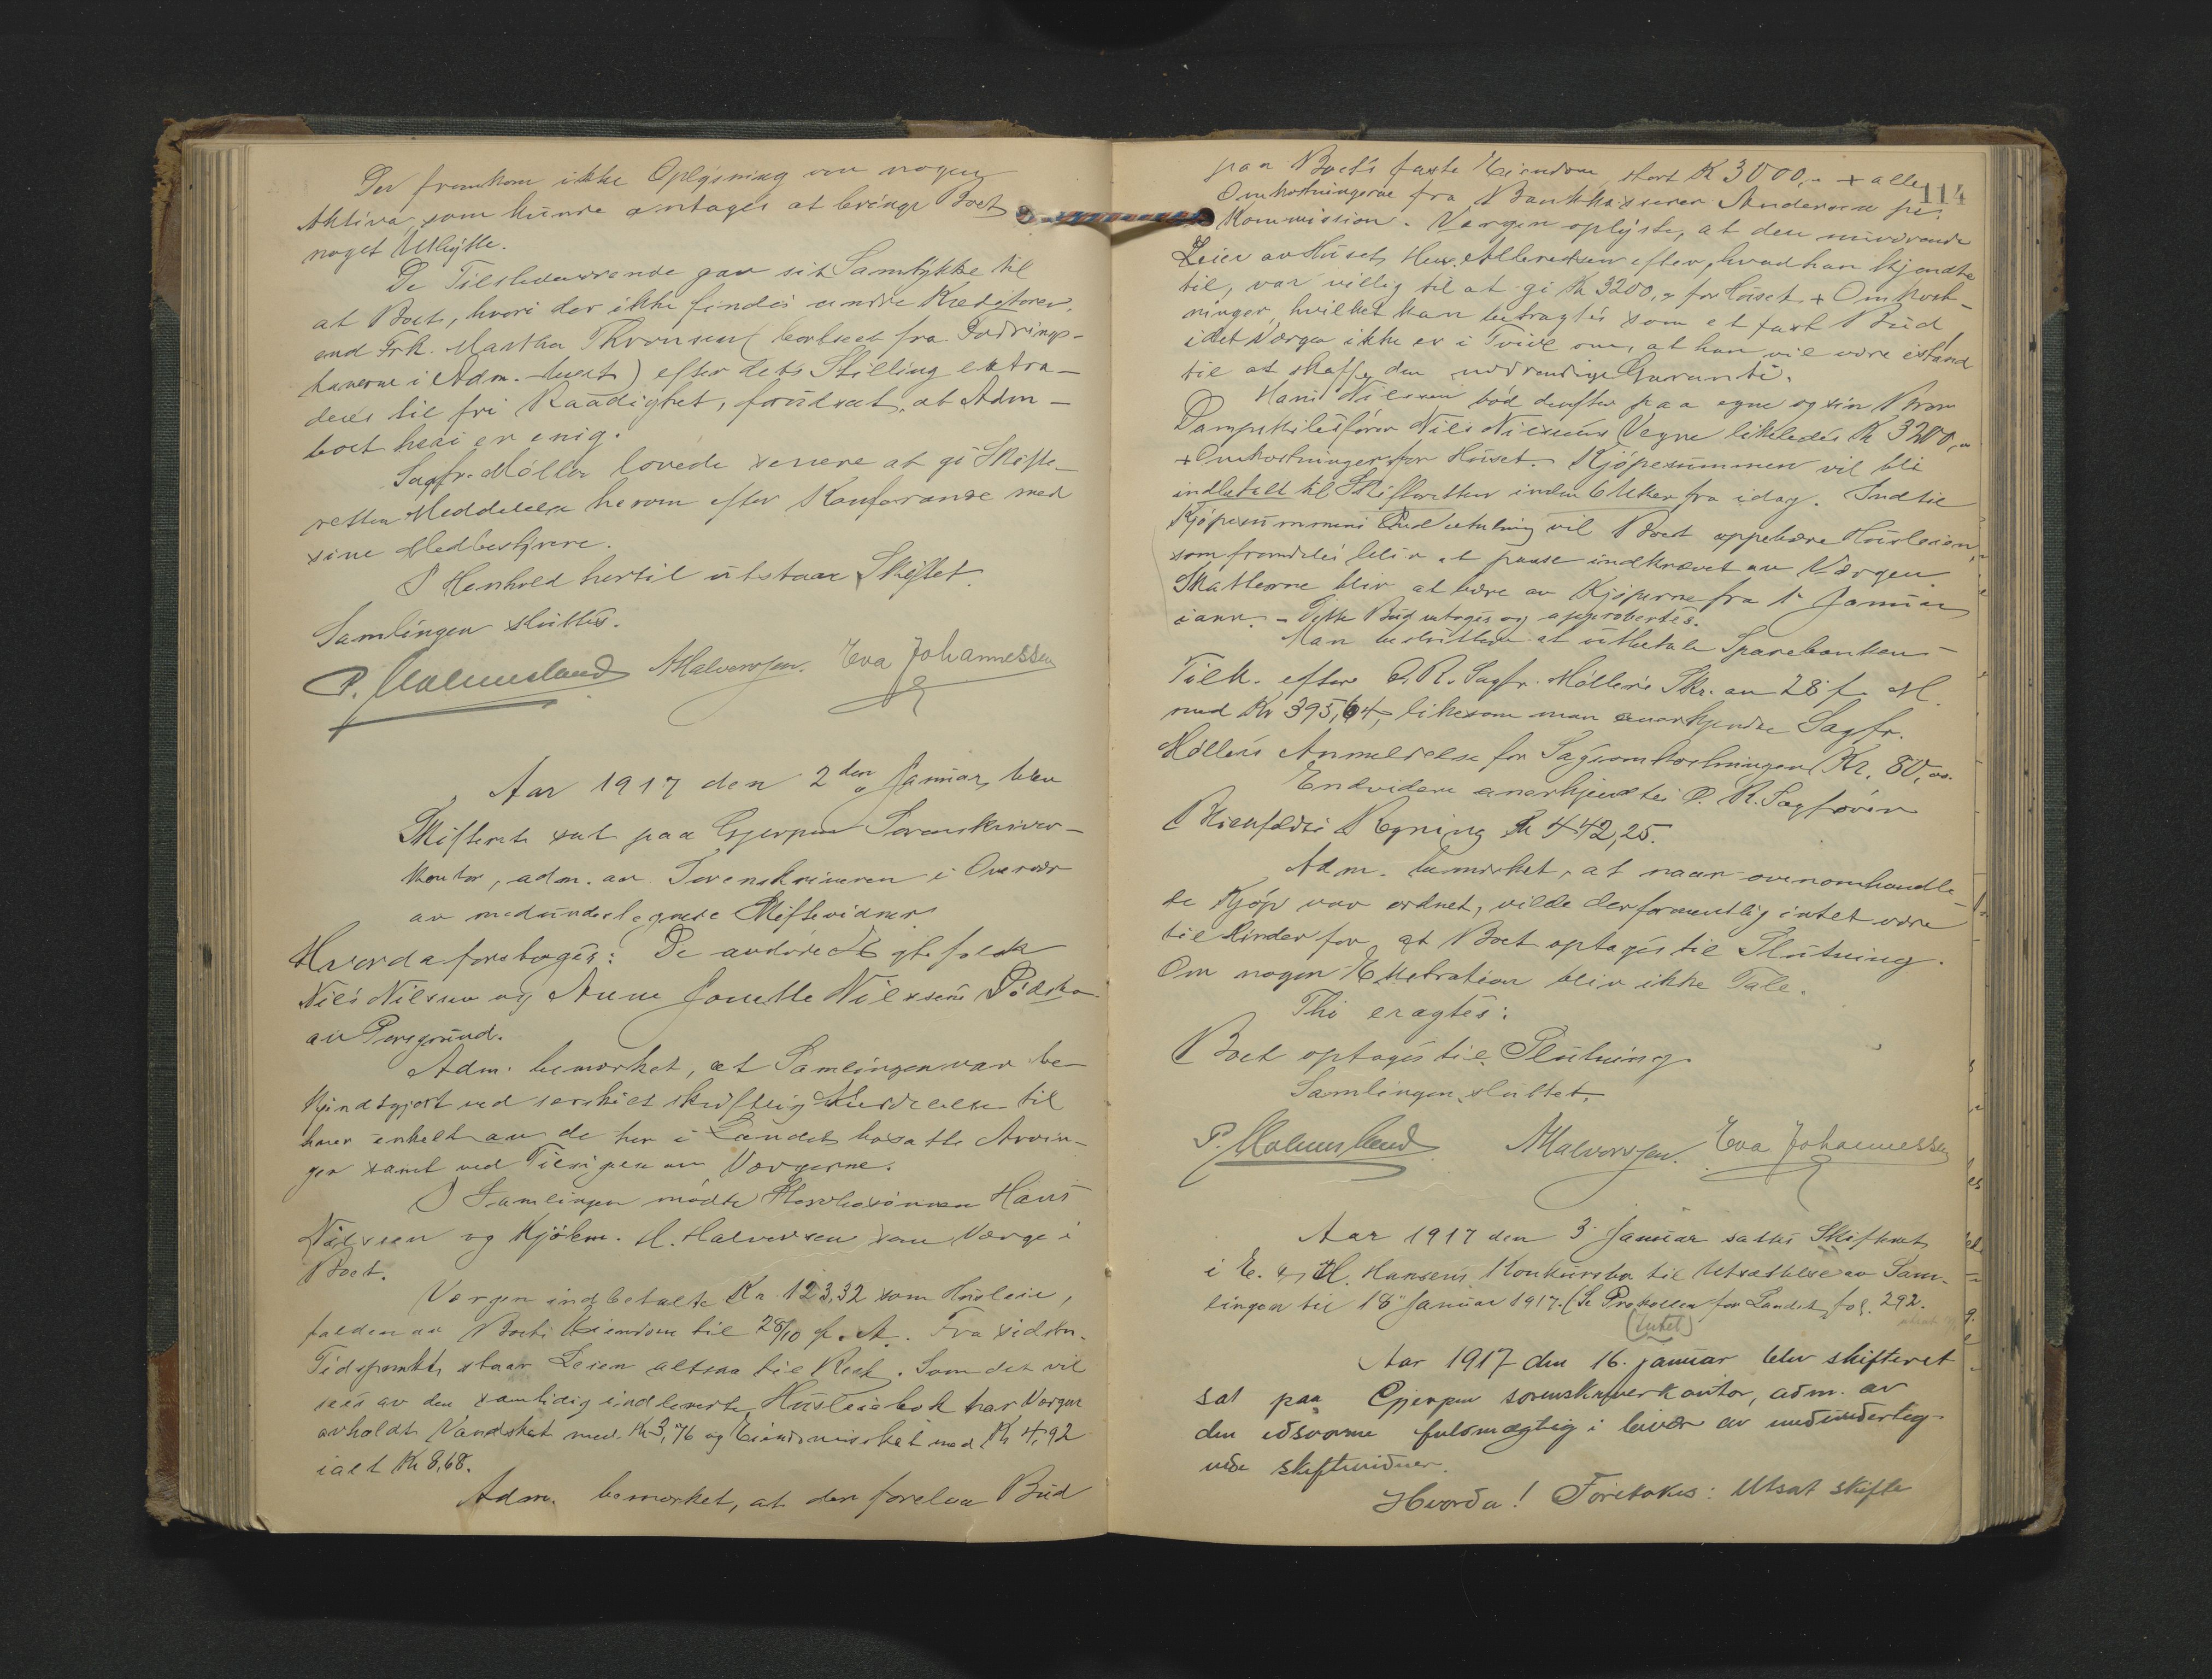 Der fremkom ikke Oplysning om nogen
Aktiva, som kunde antages at bringe Boet
noget Utbytte.
De Tilstedeværende gav sit Samtykke til
at Boet, hvori der ikke findes andre Kreditorer,
end Frk. Martha Thronsen (bortseet fra Fordrings-
haverne i Adm.-boet) efter dets Stilling extra-
deres til fri Raadighet, forudsat, at Adm-
boet heri er enig.
Sagfr. Møller lovede senere at gi Skifte-
retten Meddelelse herom efter Konferanse med
sine Medbestyrere.
I Henhold hertil utstaar Skiftet.
Samlingen sluttes.
P. Malmsland AHalvorsen. Eva Johannessen
Aar 1917 den 2den Januar, blev
Skifteret sat paa Gjerpen Sorenskriver-
kontor, adm. av Sorenskriveren i Overvær
av medundertegnede Skiftevidner
Hvorda foretoges: De avdøde Egtefolk
Nils Nilsen og Anne Jonette Nilssens Dødsbo
av Porsgrund.
Adm. bemerket, at Samlingen var be-
kjendtgjort ved særskilt skriftlig Meddelelse til
hver enkelt av de her i Landet bosatte Arvin-
ger samt ved Tilsigelse av Vergerne.
I Samlingen mødte Hans
Nilssen og Kjøbm. H. Halvorsen som Verge i
Boet.
Vergen indbetalte Kr. 123,32 som Husleie,
falden av Boets Eiendom til 28/10 f. A. Fra sidstn.
Tidspunkt staar Leien altsaa til Rest. Som det vil
sees av den samtidig indleverte Husleiebok har Vergen
avholdt Vandskat med Kr 3,76 og Eiendomsskat med Kr 4,92
ialt Kr 8,68.
Adm. bemerket, at der forelaa Bud
114
paa Boets faste Eiendom stort K 3000,- + alle
Omkostningerne fra Bankkasserer Andersen pr.
Kommission. Vergen oplyste, at den nuværende
Leier av Huset, efter, hvad han kjendte
til, var villig til at gi Kr 3200,- for Huset + Omkost-
ninger, hvilket kan betragtes som et fast Bud,
idet Vergen ikke er i Tvil om, at han vil være istand
til at skaffe den nødvendige Garanti.
Hans Nilssen bød derefter paa egne og sin Bror
Dampskibsfører Nils Nilssens Vegne likeledes Kr 3200,-
+ Omkostninger for Huset. Kjøpesummen vil bli
indbetalt til Skifteretten inden 6 Uker fra idag. Indtil
Kjøpesummens Indbetaling vil Boet oppebære Husleien,
som fremdeles blir at passe indkrævet av Vergen.
Skatterne blir at bære av Kjøperne fra 1' Januar
iaar. - Dette Bud antoges og approbertes.
Man besluttede at utbetale Sparebanken
Tilk. efter O.R. Sagfr. Møllers Skr. av 28' f. M.
med Kr 395,64, likesom man anerkjendte Sagfr.
Møllers Anmeldelse for Sagsomkostninger Kr. 80,00.
Endvidere anerkjendtes O.R. Sagfører
Regning Kr 442,25.
Adm. bemerket, at naar ovenomhandle-
de Kjøp var ordnet, vilde der formentlig intet være
til Hinder for, at Boet optages til Slutning.
Om nogen Extradition blir ikke Tale.
Thi eragtes:
Boet optages til Slutning.
Samlingen sluttet.
P. Malmsland AHalvorsen. Eva Johannessen
Aar 1917 den 3' Januar sattes Skifteret
i E. & H. Hansens Konkursbo til Utsættelse av Sam-
lingen til 18' Januar 1917. (Se Protokollen for Landet fol. 292.
Aar 1917 den 16. januar blev skifteret
sat paa Gjerpen sorenskriverkontor, adm. av
den edsvorne fuldmægtig i overvær av medunderteg-
nede skiftevidner.
Hvorda! Foretokes: Utsat skifte